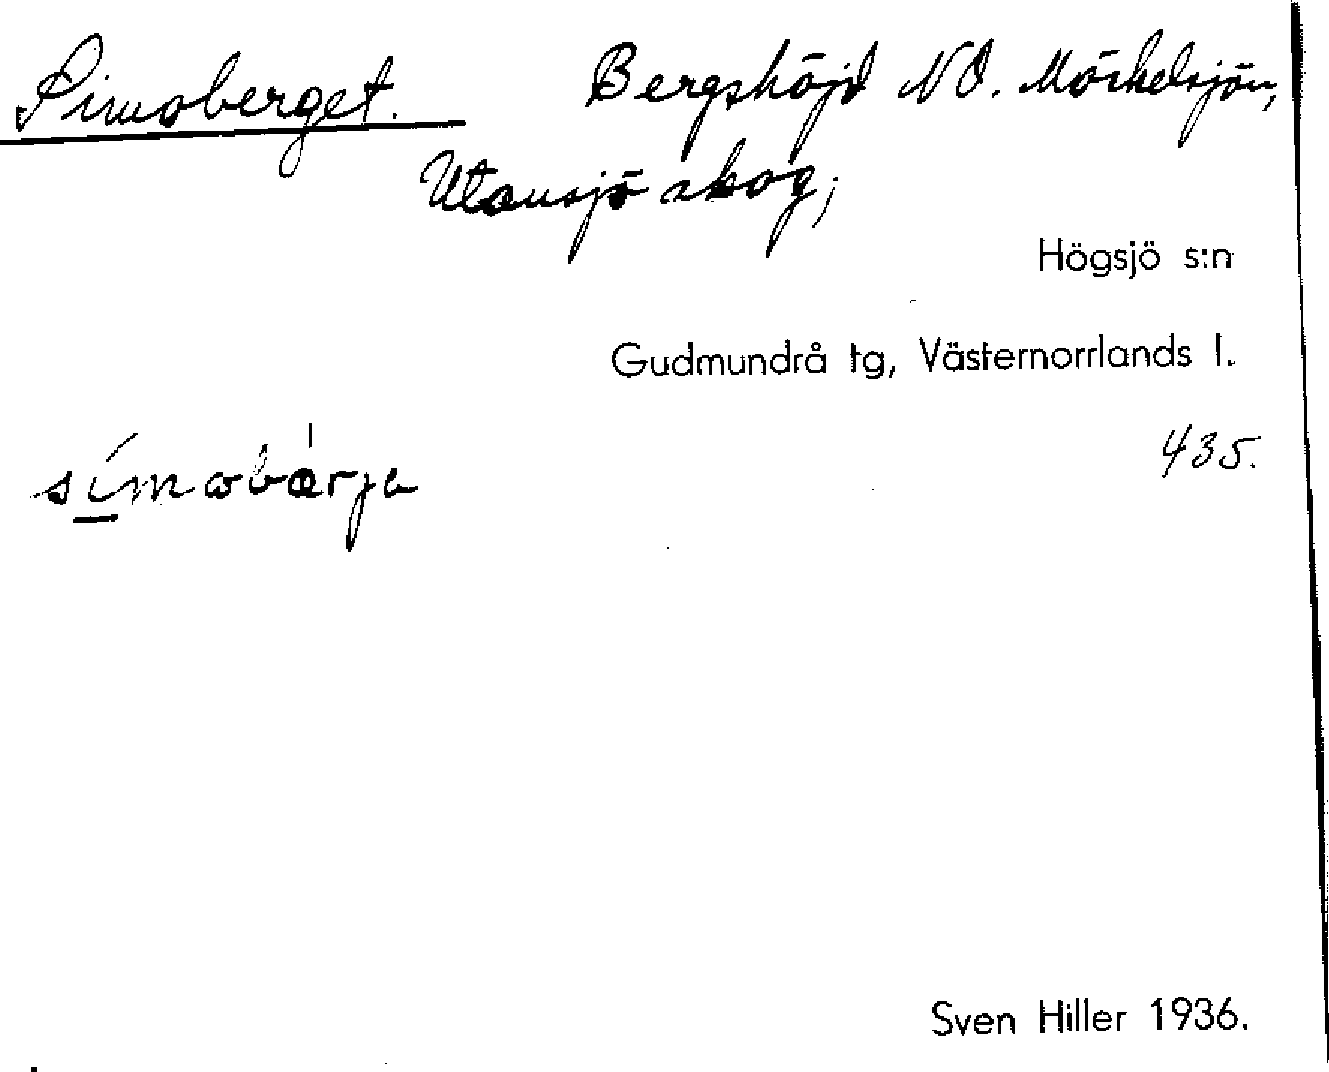 Simoberget. Bergshöjd NO. Mörkelsjön,
Utansjö skog,
Högsjö s:n
Gudmundrå tg, Västernorrlands l.
435.
Sven Hiller 1936.